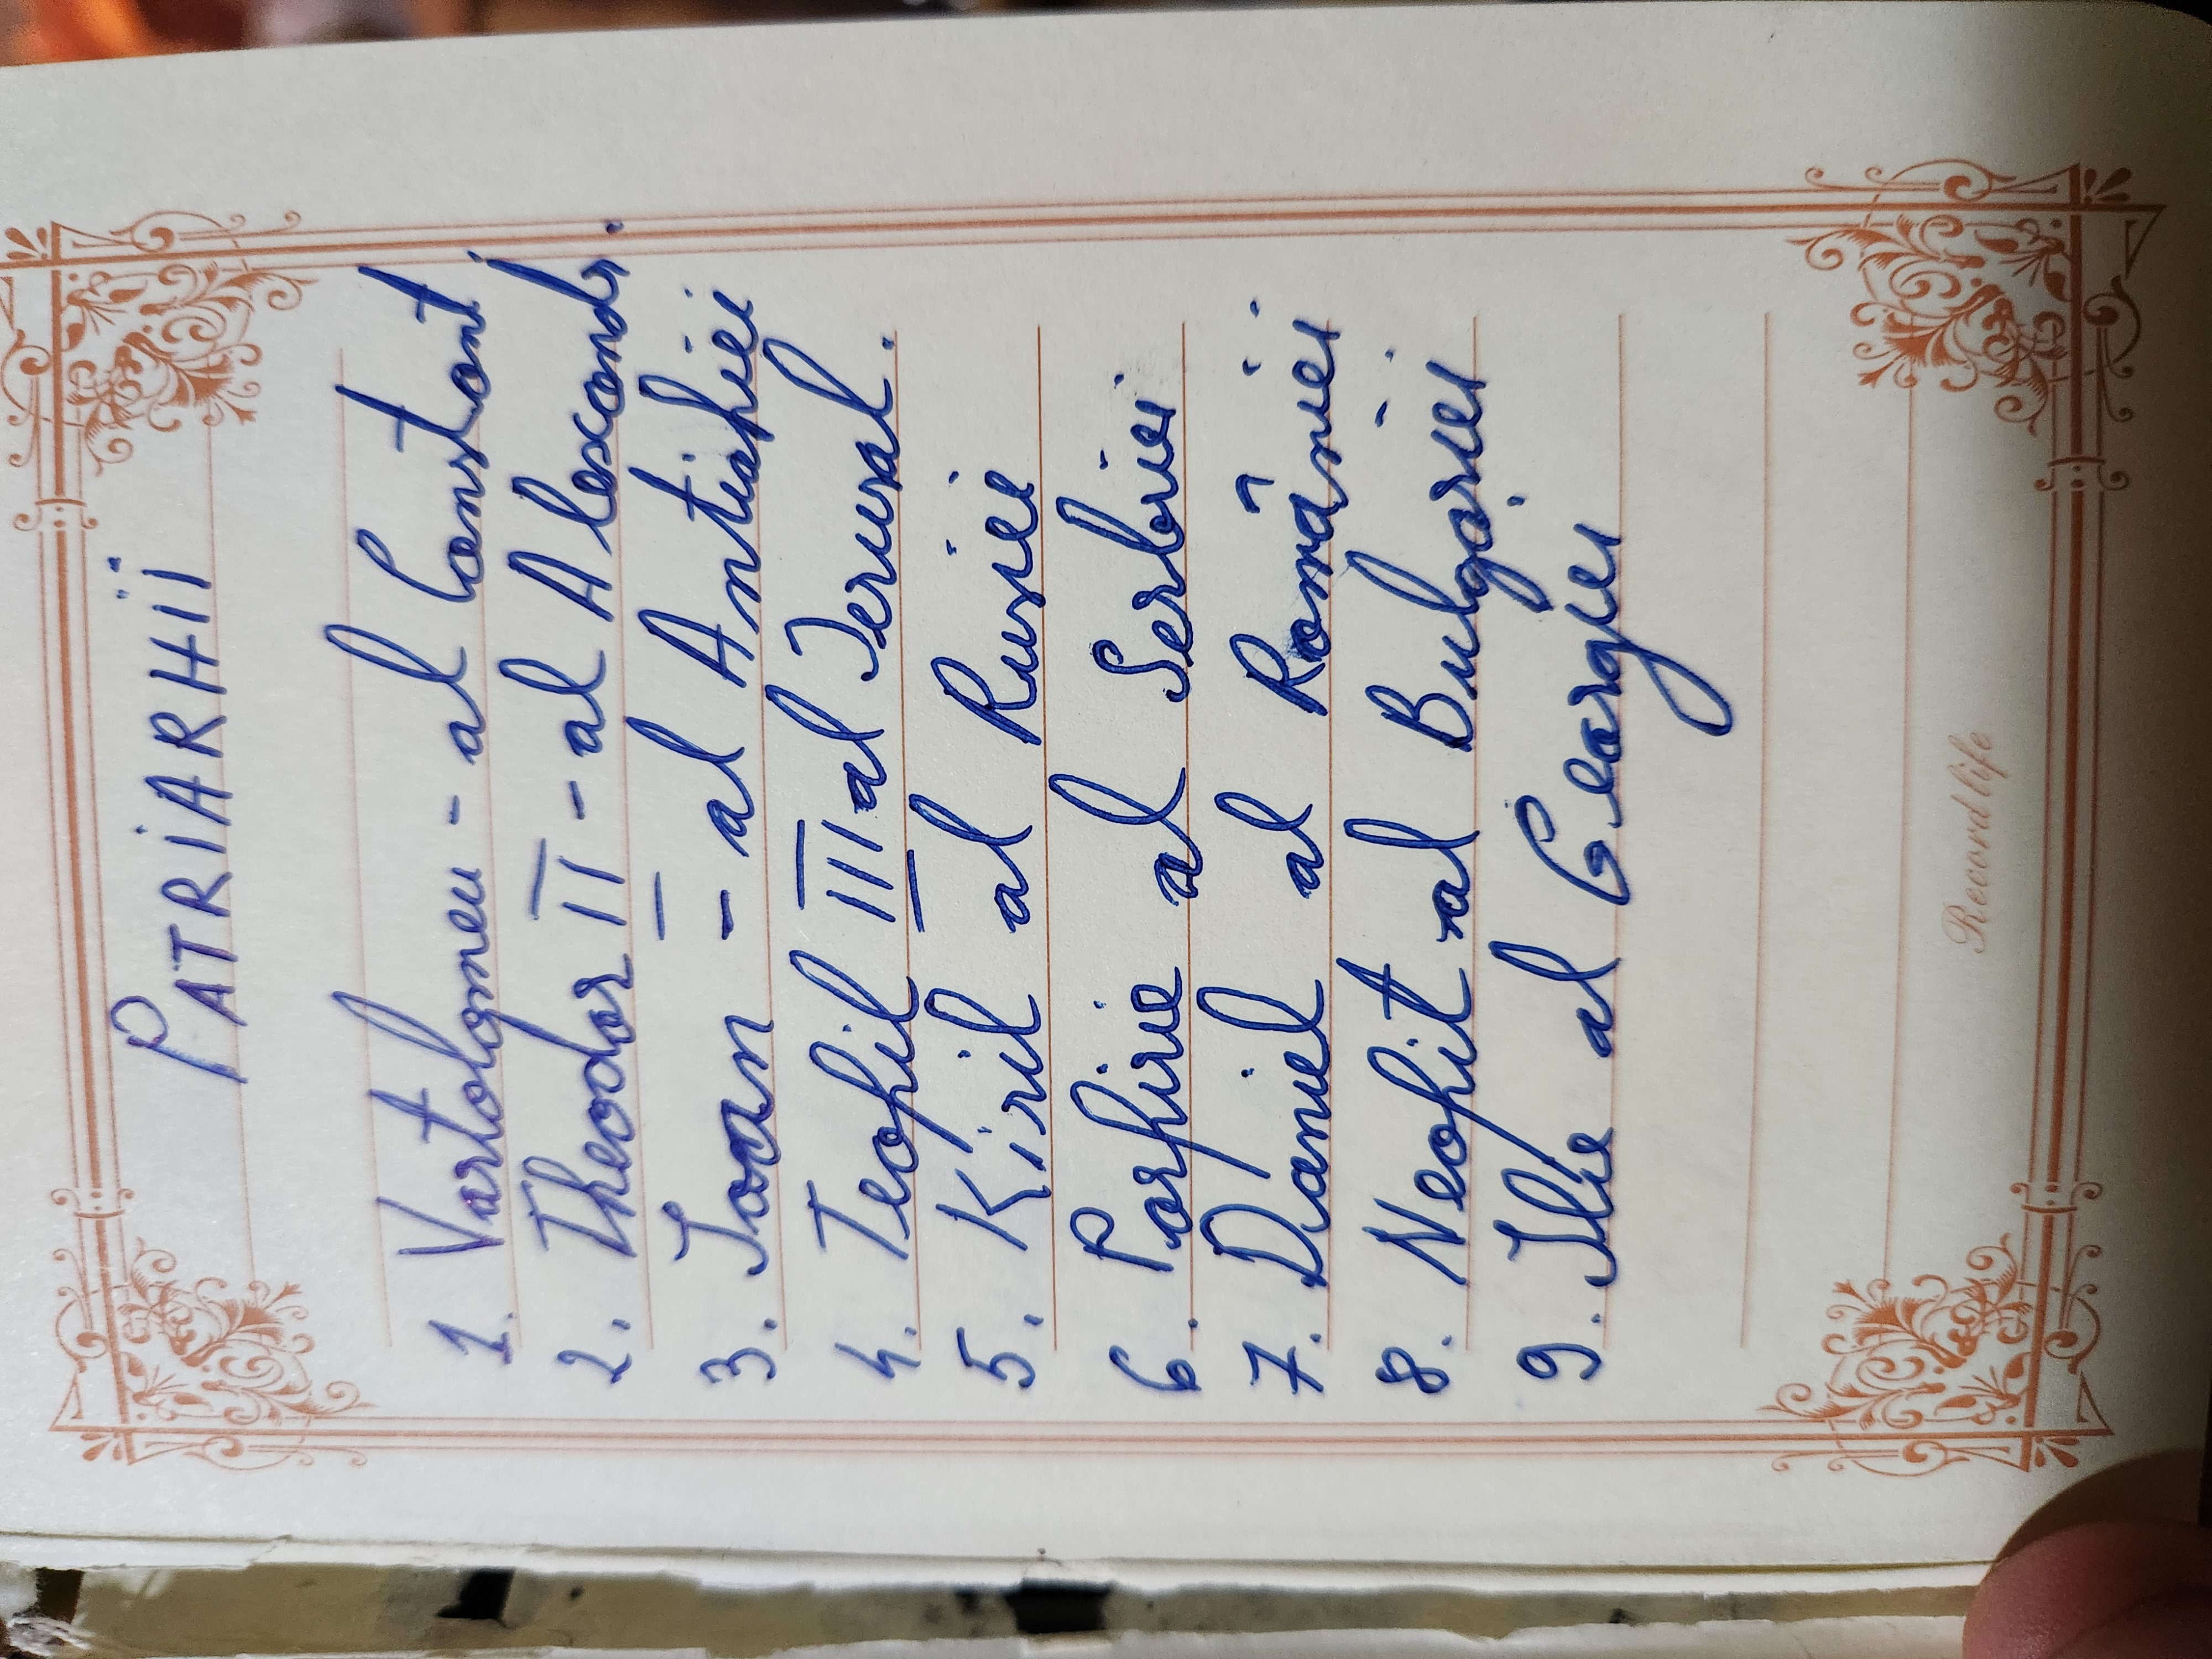 PATRiARHii
1. Vartolomeu - al Constant
2. Theodor II - al Alexandr.
3. Ioan - al Antiohiei
4. Teofil III al Ierusal.
5. Kiril al Rusiei
6. Porfirie al Serbiei
7. Daniel al României
8. Neofit al Bulgariei
9. Ilie al Georgiei
Record life